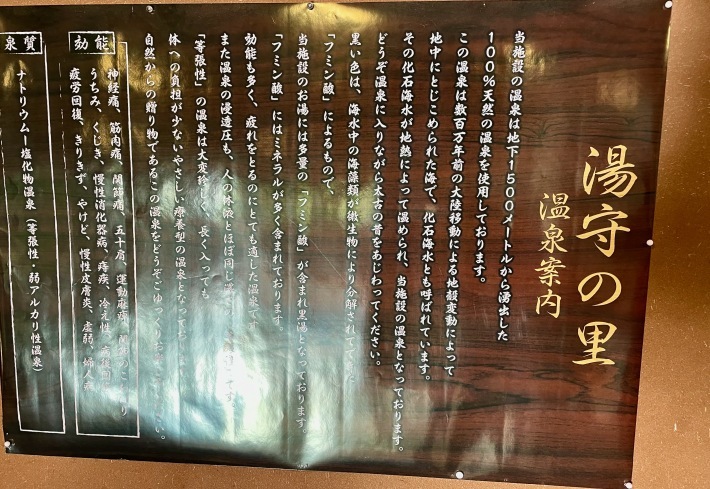 湯守の里
温泉案内
当施設の温泉は地下1500メートルから湧出した
100%天然の温泉を使用しております。
この温泉は数百万年前の大陸移動による地殻変動によって
地中にとじこめられた海で、化石海水とも呼ばれています。
その化石海水が地熱によって温められ、当施設の温泉となっております。
どうぞ温泉に入りながら太古の昔をあじわってください。
黒い色は、海水中の海藻類が微生物により分解されてできた
「フミン酸」によるもので、
当施設のお湯には多量の「フミン酸」が含まれ黒湯となっております。
「フミン酸」にはミネラルが多く含まれております。
効能も多く、疲れをとるのにとても適した温泉です
また温泉の浸透圧も、人の体液とほぼ同じ
「等張性」の温泉は大変珍しく、長く入っても
体への負担が少ないやさしい療養型の温泉となって
自然からの贈り物であるこの温泉をどうぞごゆっくり
効能
神経痛、筋肉痛、関節痛、五十肩、運動麻痺、関節のこわばり
うちみ、くじき、慢性消化器病、痔疾、冷え性、病後回復
疲労回復、きりきず、やけど、慢性皮膚炎、虚弱、婦人病
泉質
ナトリウムー塩化物温泉(等張性 弱アルカリ性温泉)